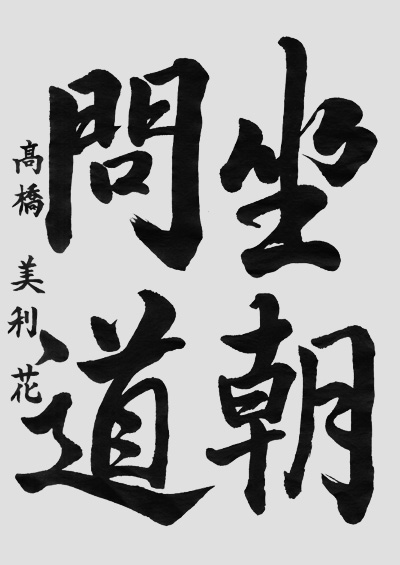 坐朝
問道
髙橋 美利花